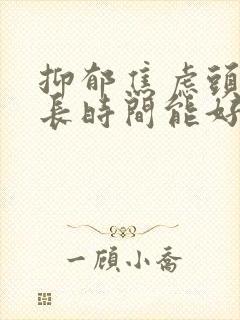 抑郁焦虑頭
長時間能好
一顾小喬